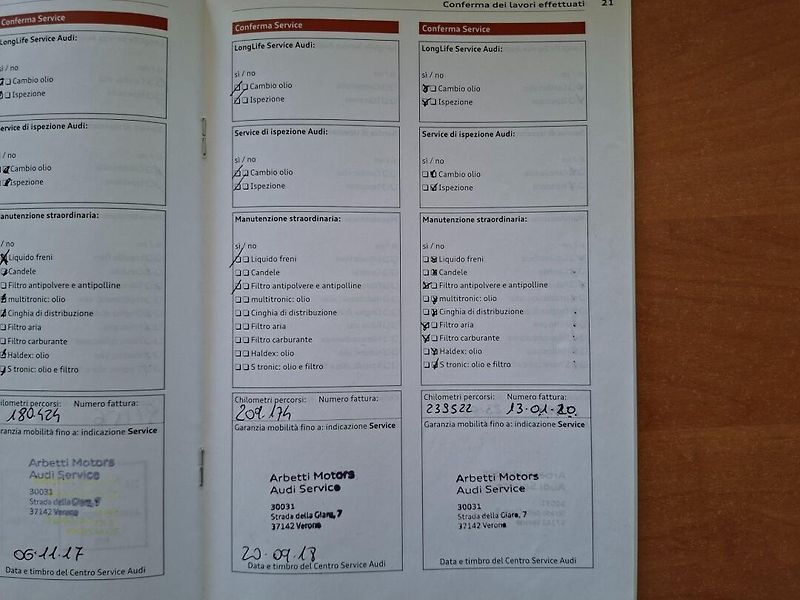 Conferma dei lavori effettuati 21
Conferma Service
LongLife Service Audi:
sì / no
Cambio olio
Ispezione
Service di ispezione Audi:
/ no
Cambio olio
Ispezione
Manutenzione straordinaria:
/ no
Liquido freni
Candele
Filtro antipolvere e antipolline
multitronic: olio
Cinghia di distribuzione
Filtro aria
Filtro carburante
Haldex: olio
S tronic: olio e filtro
Chilometri percorsi: Numero fattura:
180424
Garanzia mobilità fino a: indicazione Service
Arbetti Motors
Audi Service
30031
Strada della Giara, 7
37142 Verona
06.11.17
Data e timbro del Centro Service Audi
Conferma Service
LongLife Service Audi:
sì / no
Cambio olio
Ispezione
Service di ispezione Audi:
sì / no
Cambio olio
Ispezione
Manutenzione straordinaria:
sì / no
Liquido freni
Candele
Filtro antipolvere e antipolline
multitronic: olio
Cinghia di distribuzione
Filtro aria
Filtro carburante
Haldex: olio
S tronic: olio e filtro
Chilometri percorsi: Numero fattura:
209174
Garanzia mobilità fino a: indicazione Service
Arbetti Motors
Audi Service
30031
Strada della Giara, 7
37142 Verona
20.09.18
Data e timbro del Centro Service Audi
Conferma Service
LongLife Service Audi:
sì / no
Cambio olio
Ispezione
Service di ispezione Audi:
sì / no
Cambio olio
Ispezione
Manutenzione straordinaria:
sì / no
Liquido freni
Candele
Filtro antipolvere e antipolline
multitronic: olio
Cinghia di distribuzione
Filtro aria
Filtro carburante
Haldex: olio
S tronic: olio e filtro
Chilometri percorsi: Numero fattura:
233522 13-01-20
Garanzia mobilità fino a: indicazione Service
Arbetti Motors
Audi Service
30031
Strada della Giara, 7
37142 Verona
Data e timbro del Centro Service Audi